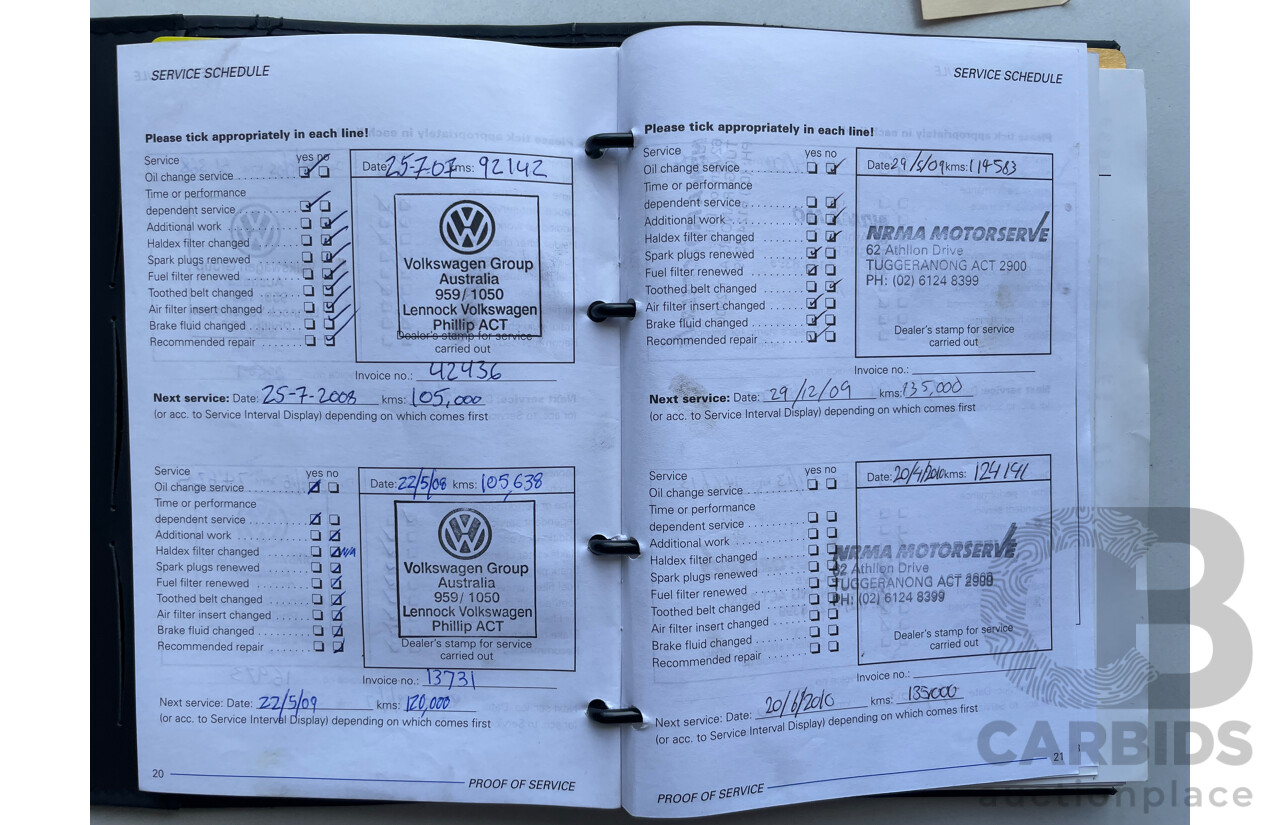 SERVICE SCHEDULE
Please tick appropriately in each line!
Service
yes no
Oil change service
Time or performance
dependent service
Additional work
Haldex filter changed
Spark plugs renewed
Fuel filter renewed
Toothed belt changed
Air filter insert changed
Brake fluid changed
Recommended repair
Date: 25-7-07 kms: 92142
Volkswagen Group
Australia
959/ 1050
Lennock Volkswagen
Phillip ACT
Dealer's stamp for service
carried out
Invoice no.: 42436
Next service: Date: 25-7-2008 kms: 105,000
(or acc. to Service Interval Display) depending on which comes first
Service
yes no
Oil change service
Time or performance
dependent service
Additional work
Haldex filter changed N/A
Spark plugs renewed
Fuel filter renewed
Toothed belt changed
Air filter insert changed
Brake fluid changed
Recommended repair
Date: 22/5/08 kms: 105,638
Volkswagen Group
Australia
959/ 1050
Lennock Volkswagen
Phillip ACT
Dealer's stamp for service
carried out
Invoice no.: 13731
Next service: Date: 22/5/09 kms: 120,000
(or acc. to Service Interval Display) depending on which comes first
20
PROOF OF SERVICE
SERVICE SCHEDULE
Please tick appropriately in each line!
Service
yes no
Oil change service
Time or performance
dependent service
Additional work
Haldex filter changed
Spark plugs renewed
Fuel filter renewed
Toothed belt changed
Air filter insert changed
Brake fluid changed
Recommended repair
Date: 29/5/09 kms: 114563
NRMA MOTORSERVE
62 Athllon Drive
TUGGERANONG ACT 2900
PH: (02) 6124 8399
Dealer's stamp for service
carried out
Invoice no.:
Next service: Date: 29/12/09 kms: 135,000
(or acc. to Service Interval Display) depending on which comes first
Service
yes no
Oil change service
Time or performance
dependent service
Additional work
Haldex filter changed
Spark plugs renewed
Fuel filter renewed
Toothed belt changed
Air filter insert changed
Brake fluid changed
Recommended repair
Date: 20/4/2010 kms: 124141
NRMA MOTORSERVE
62 Athllon Drive
TUGGERANONG ACT 2900
PH: (02) 6124 8399
Dealer's stamp for service
carried out
Invoice no.:
Next service: Date: 20/6/2010 kms: 135000
(or acc. to Service Interval Display) depending on which comes first
21
PROOF OF SERVICE
CARBIDS
auctionplace